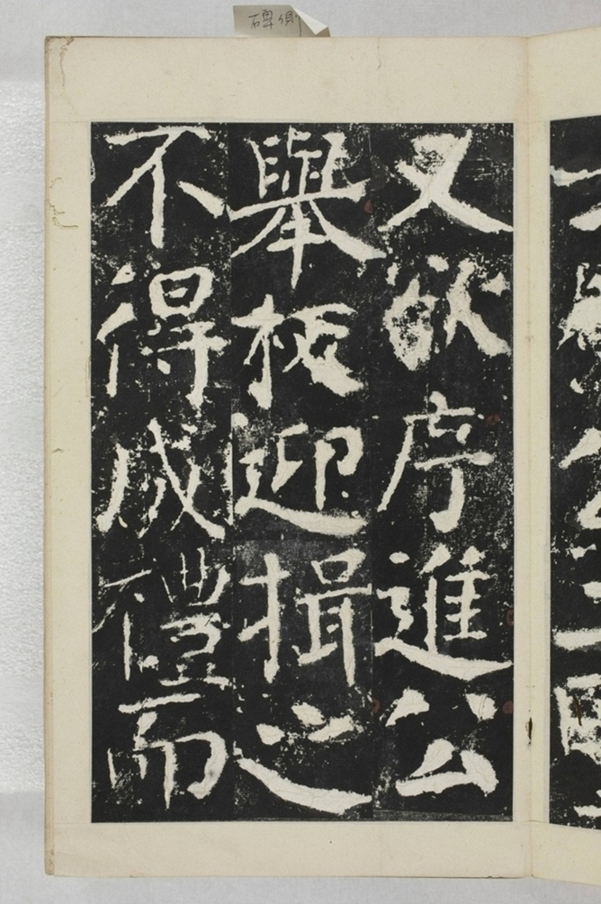 碑側
又欲序進公
舉板迎揖之
不得成禮而